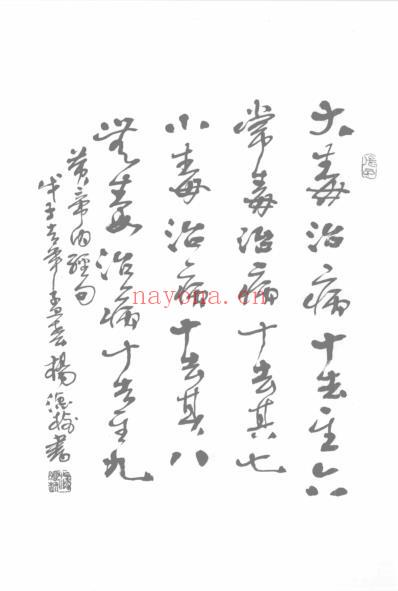 大毒治病十去其六
常毒治病十去其七
小毒治病十去其八
無毒治病十去其九
黄帝内經句
戊子年孟春楊德書
nayona.cn